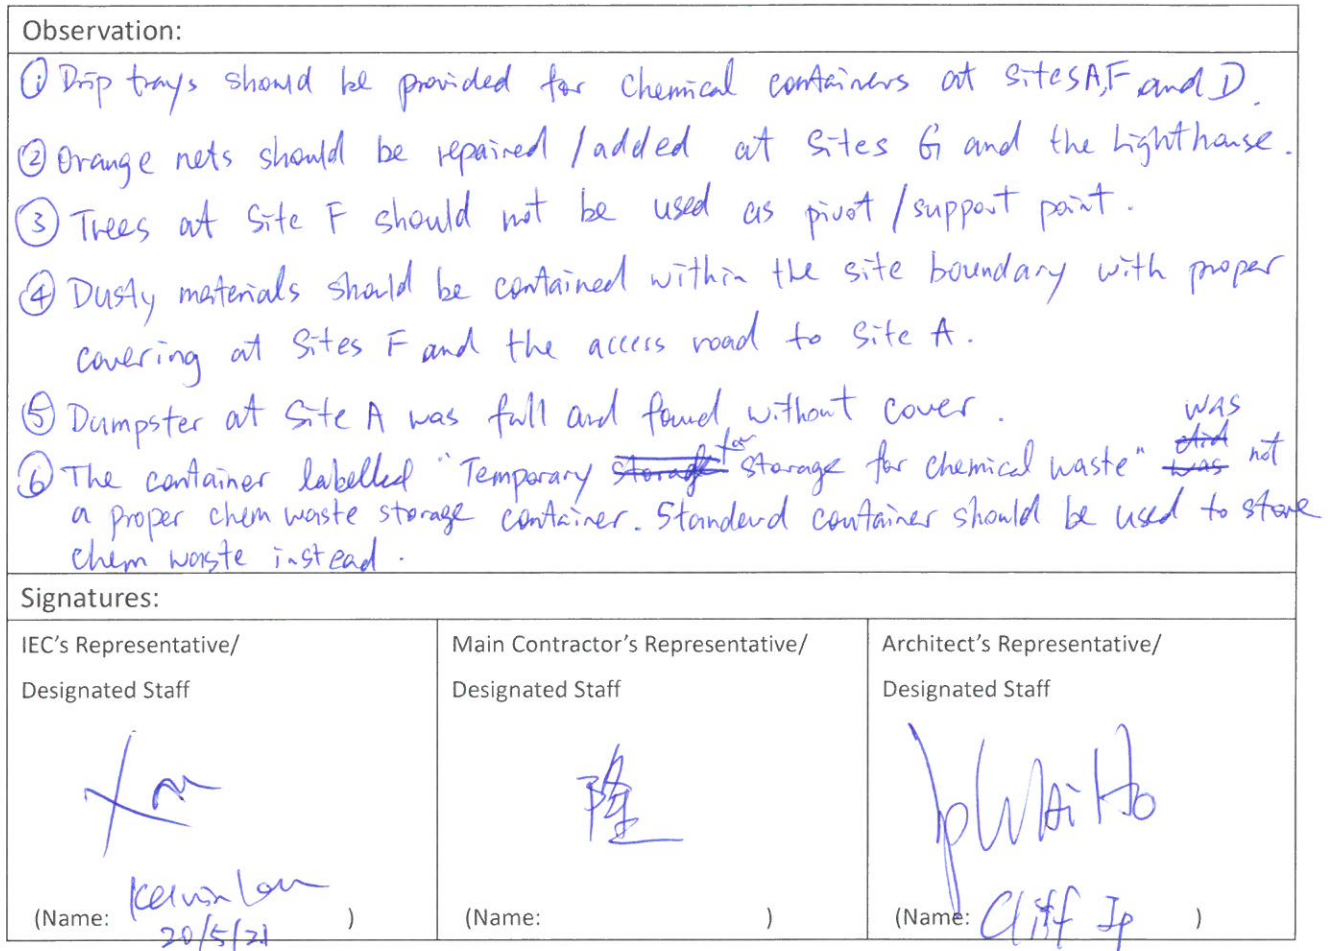 Observation:
① Drip trays should be provided for chemical containers at sites A, F and D.
② Orange nets should be repaired / added at Sites G and the Lighthouse.
③ Trees at Site F should not be used as pivot / support point.
④ Dusty materials should be contained within the site boundary with proper
covering at Sites F and the access road to Site A.
⑤ Dumpster at Site A was full and found without cover.
⑥ The container labelled "Temporary storage for chemical waste" was not
a proper chem waste storage container. Standerd container should be used to store
chem waste instead.
Signatures:
IEC's Representative/
Designated Staff
Main Contractor's Representative/
Designated Staff
Architect's Representative/
Designated Staff
隆
Ip Wai Ho
(Name: Kelvin )
20/5/21
(Name: )
(Name: Cliff Ip )